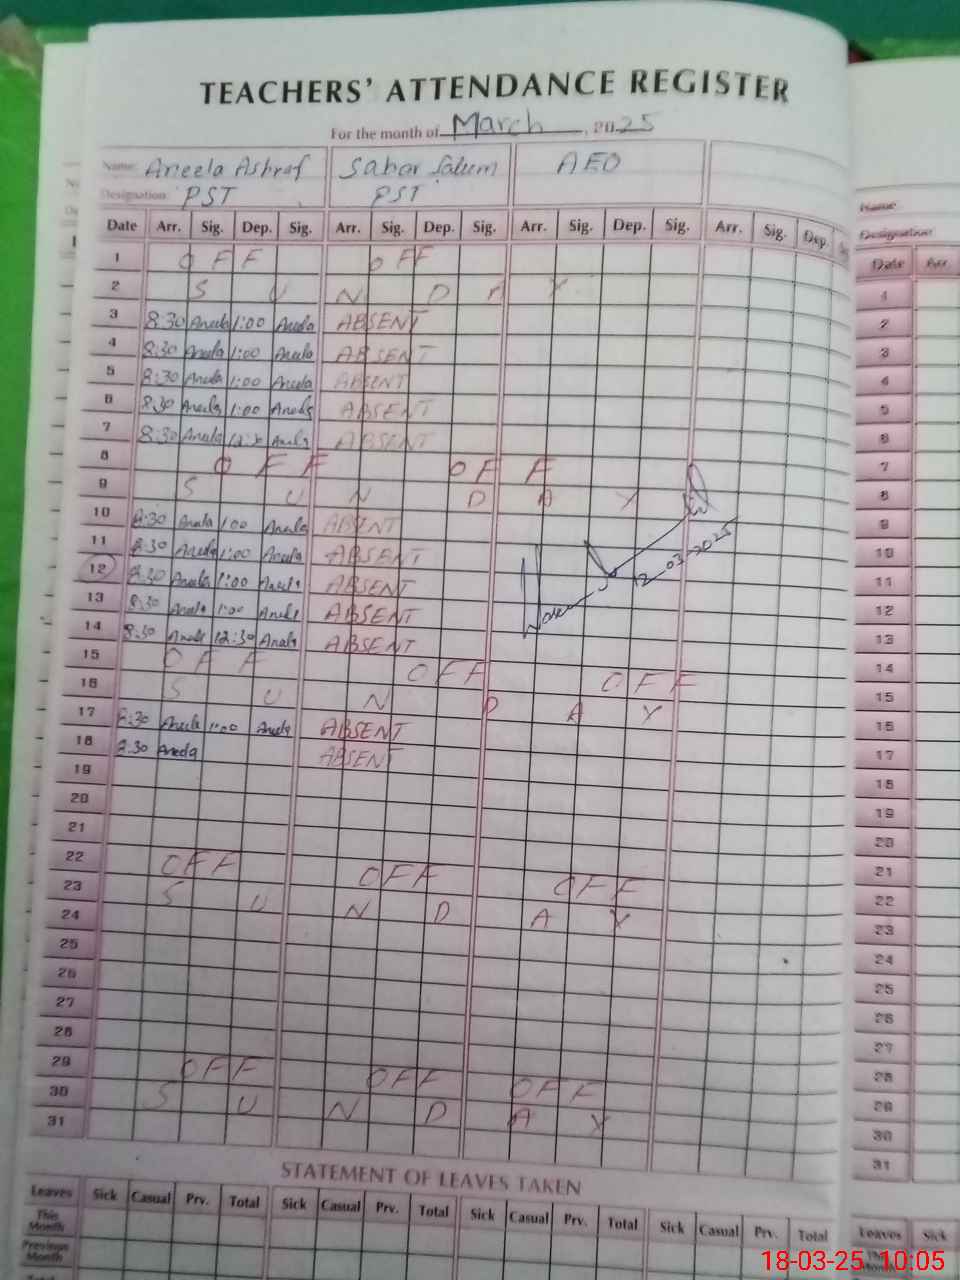 TEACHERS' ATTENDANCE REGISTER
For the month of March, 2025
Name: Aneela Ashraf Sahar Salum AEO
Designation: PST PST
Date Arr. Sig. Dep. Sig. Arr. Sig. Dep. Sig. Arr. Sig. Dep. Sig. Arr. Sig. Dep.
1 OFF OFF
2 S U N D A Y
3 8:30 Aneela 1:00 Aneela ABSENT
4 8:30 Aneela 1:00 Aneela ABSENT
5 8:30 Aneela 1:00 Aneela ABSENT
6 8:30 Aneela 1:00 Aneela ABSENT
7 8:30 Aneela 12:30 Aneela ABSENT
8 OFF OFF
9 S U N D A Y
10 8:30 Aneela 1:00 Aneela ABSENT
11 8:30 Aneela 1:00 Aneela ABSENT
12 8:30 Aneela 1:00 Aneela ABSENT 12-03-2025
13 8:30 Aneela 1:00 Aneela ABSENT
14 8:30 Aneela 12:30 Aneela ABSENT
15 OFF OFF OFF
16 S U N D A Y
17 8:30 Aneela 1:00 Aneela ABSENT
18 8:30 Aneela ABSENT
19
20
21
22 OFF OFF OFF
23 S U N D A Y
24
25
26
27
28
29 OFF OFF OFF
30 S U N D A Y
31
STATEMENT OF LEAVES TAKEN
Leaves Sick Casual Prv. Total Sick Casual Prv. Total Sick Casual Prv. Total Sick Casual Prv. Total
This Month
Previous Month
Name
Designation
Date Arr
1
2
3
4
5
6
7
8
9
10
11
12
13
14
15
16
17
18
19
20
21
22
23
24
25
26
27
28
29
30
31
Leaves Sick
18-03-25 10:05